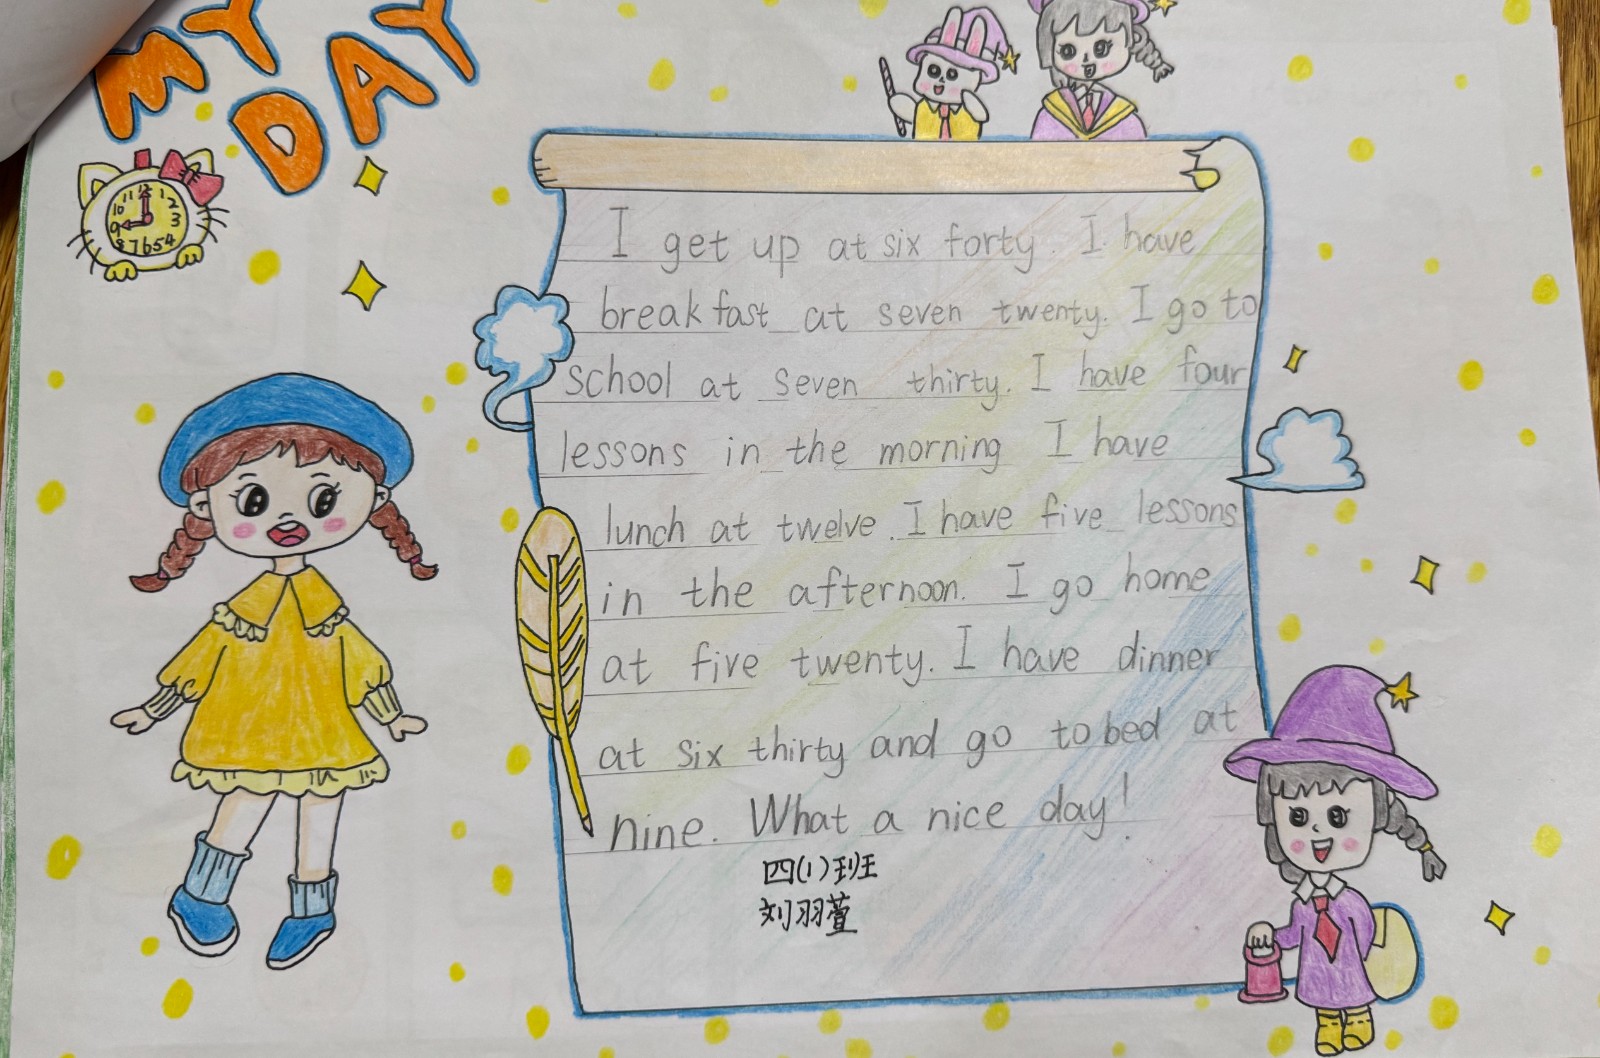 MY
DAY
11 12 1
10 2
9 3
8 7 6 5 4
I get up at six forty. I have
breakfast at seven twenty. I go to
school at seven thirty. I have four
lessons in the morning I have
lunch at twelve. I have five lessons
in the afternoon. I go home
at five twenty. I have dinner
at six thirty and go to bed at
nine. What a nice day!
四(1)班
刘羽萱